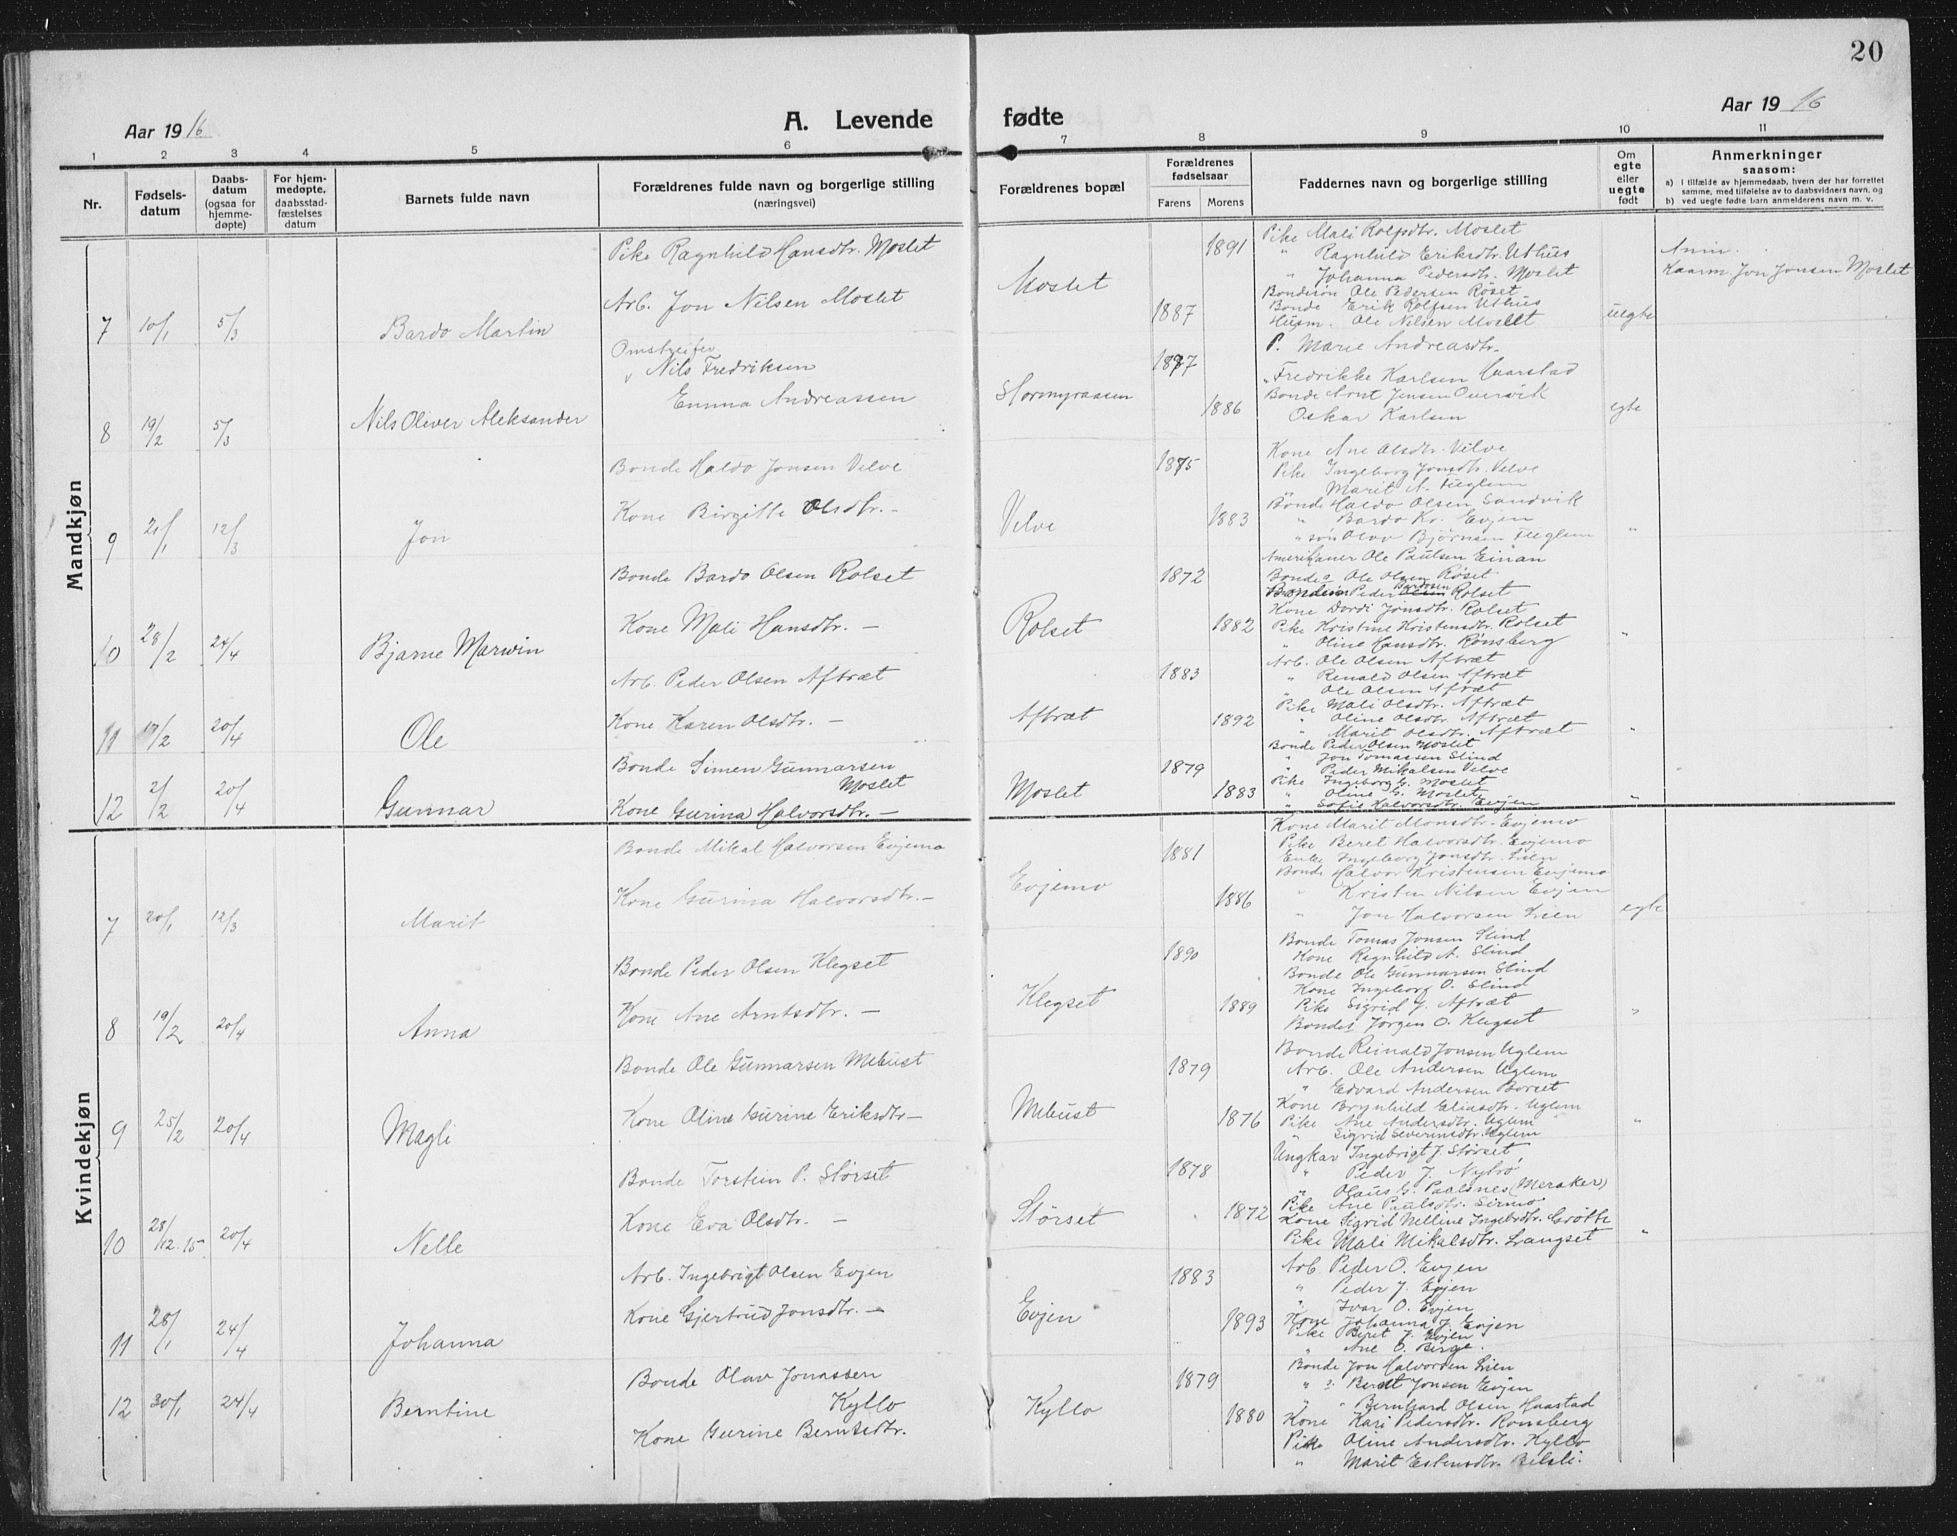 20
Aar 1916
A. Levende
fødte
Aar 1916
1 2 3 4 5 6 7 8 9 10 11
Nr.
Fødsels-
datum
Daabs-
datum
(ogsaa for
hjemme-
døpte)
For hjem-
medøpte,
daabsstad-
fæstelses
datum
Barnets fulde navn
Forældrenes fulde navn og borgerlige stilling
(næringsvei)
Forældrenes bopæl
Forældrenes
fødselsaar
Farens Morens
Faddernes navn og borgerlige stilling
Om
egte
eller
uegte
født
Anmerkninger
saasom:
a) I tilfælde av hjemmedaab, hvem der har forrettet
samme, med tilføielse av to daabsvidners navn, og
b) ved uegte fødte barn anmelderens navn m. v.
Mandkjøn
7 10/1 5/3 Bardo Martin
Pike Ragnhild Hansdtr. Moslet
Arb. Jon Nilsen Moslet
Moslet
1891
1887
Pike Mali Rolfsdtr. Moslet
" Ragnhild Eriksdtr. Uthus
" Johanna Pedersdtr. Moslet
Bondesøn Ole Pedersen Røset
Bonde Erik Rolfsen Uthus
Husm. Ole Nilsen Moslet
uegte
Anm.
Kaarm. Jon Jonsen Moslet
8 19/2 5/3 Nils Oliver Aleksander
Omstreifer
" Nils Fredriksen
Emma Andreassen
Stormyraasen
1887
1886
P. Marie Andreasdtr.
" Fredrikke Karlsen Haarstad
Bonde Arnt Jensen Overvik
Oskar Karlsen
egte
9 20/1 12/3 Jon
Bonde Haldo Jonsen Velve
Kone Birgitte Olsdtr. –
Velve
1875
1883
Kone Ane Olsdtr. Velve
Pike Ingeborg Jonsdtr. Velve
" Marit A. Uglem
Bonde Haldo Olsen Sandvik
" Bardo Kr. Evjen
" søn Olav Bjørnsen Uglem
"
10 28/2 24/4 Bjarne Marwin
Bonde Bardo Olsen Rolset
Kone Mali Hansdtr. –
Rolset
1872
1882
Amerikaner Ole Paulsen Einan
Bondes Ole Olsen Røset
Bondesøn Peder Bardosen Rolset
Kone Dordi Jonsdtr. Rolset
Pike Kristine Kristensdtr. Rolset
" Oline Hansdtr. Rønsberg
"
11 17/2 20/4 Ole
Arb. Peder Olsen Aftræt
Kone Karen Olsdtr. –
Aftræt
1883
1892
Arb. Ole Olsen Aftræt
" Renald Olsen Aftræt
" Ole Olsen Aftræt
Pike Mali Olsdtr. Aftræt
" Oline Olsdtr. Aftræt
" Marit Olsdtr. Aftræt
"
12 2/2 20/4 Gunnar
Bonde Simen Gunnarsen
Moslet
Kone Gurina Halvorsdtr. –
Moslet
1879
1883
Bonde Peder Olsen Moslet
" Jon Tomassen Slind
" Peder Mikalsen Velve
Pike Ingeborg G. Moslet
" Oline G. Moslet
" Sofie Halvorsdtr. Evjen
"
Kvindekjøn
7 20/1 12/3 Marit
Bonde Mikal Halvorsen Evjemo
Kone Gurina Halvorsdtr. –
Evjemo
1881
1886
Kone Marit Monsdtr. Evjemo
Pike Beret Halvorsdtr. Evjemo
Enke Ingeborg Jonsdtr. Lien
Bonde Halvor Kristensen Evjemo
" Kristen Nilsen Evjen
" Jon Halvorsen Lien
egte
8 19/2 20/4 Anna
Bonde Peder Olsen Klegset
Kone Ane Arntsdtr. –
Klegset
1890
1889
Bonde Tomas Jonsen Slind
Kone Ragnhild A. Slind
Bonde Ole Gunnarsen Slind
Kone Ingeborg O. Slind
Pike Sigrid J. Aftræt
Bondes Jørgen O. Klegset
"
9 25/2 20/4 Magli
Bonde Ole Gunnarsen Mebust
Kone Oline Gurine Eriksdtr –
Mebust
1879
1876
Bonde Reinald Jonsen Uglem
Arb. Ole Andersen Uglem
" Edvard Andersen Borset
Kone Brynhild Eliasdtr. Uglem
Pike Ane Andersdtr. Uglem
" Sigrid Severinsdtr. Uglem
"
10 28/12.15 20/4 Nelle
Bonde Torstein P. Størset
Kone Eva Olsdtr. –
Størset
1878
1872
Ungkar Ingebrigt J. Størset
" Peder J. Nybrø
" Olaus G. Paalsnes (Meraker)
Pike Ane Paulsdtr. Sirmo
Kone Sigrid Nelline Ingebrdtr. Grøtte
Pike Mali Mikalsdtr. Langset
"
11 28/1 24/4 Johanna
Arb. Ingebrigt Olsen Evjen
Kone Gjertrud Jonsdtr. –
Evjen
1883
1893
Arb. Peder O. Evjen
" Peder J. Evjen
" Ivar O. Evjen
Kone Johanna J. Evjen
Pike Beret J. Evjen
" Ane O. Berge.
12 30/1 24/4 Berntine
Bonde Olav Jonassen
Kyllo
Kone Gurine Berntsdtr.
Kyllo
1879
1880
Bonde Jon Halvorsen Lien
" s. Bernt Jonsen Evjen
" " Bernhard Olsen Haastad
Kone Kari Pedersdtr. Rønsberg
Pike Oline Andersdtr. Kyllo
" Marit Estensdtr. Bilsli.